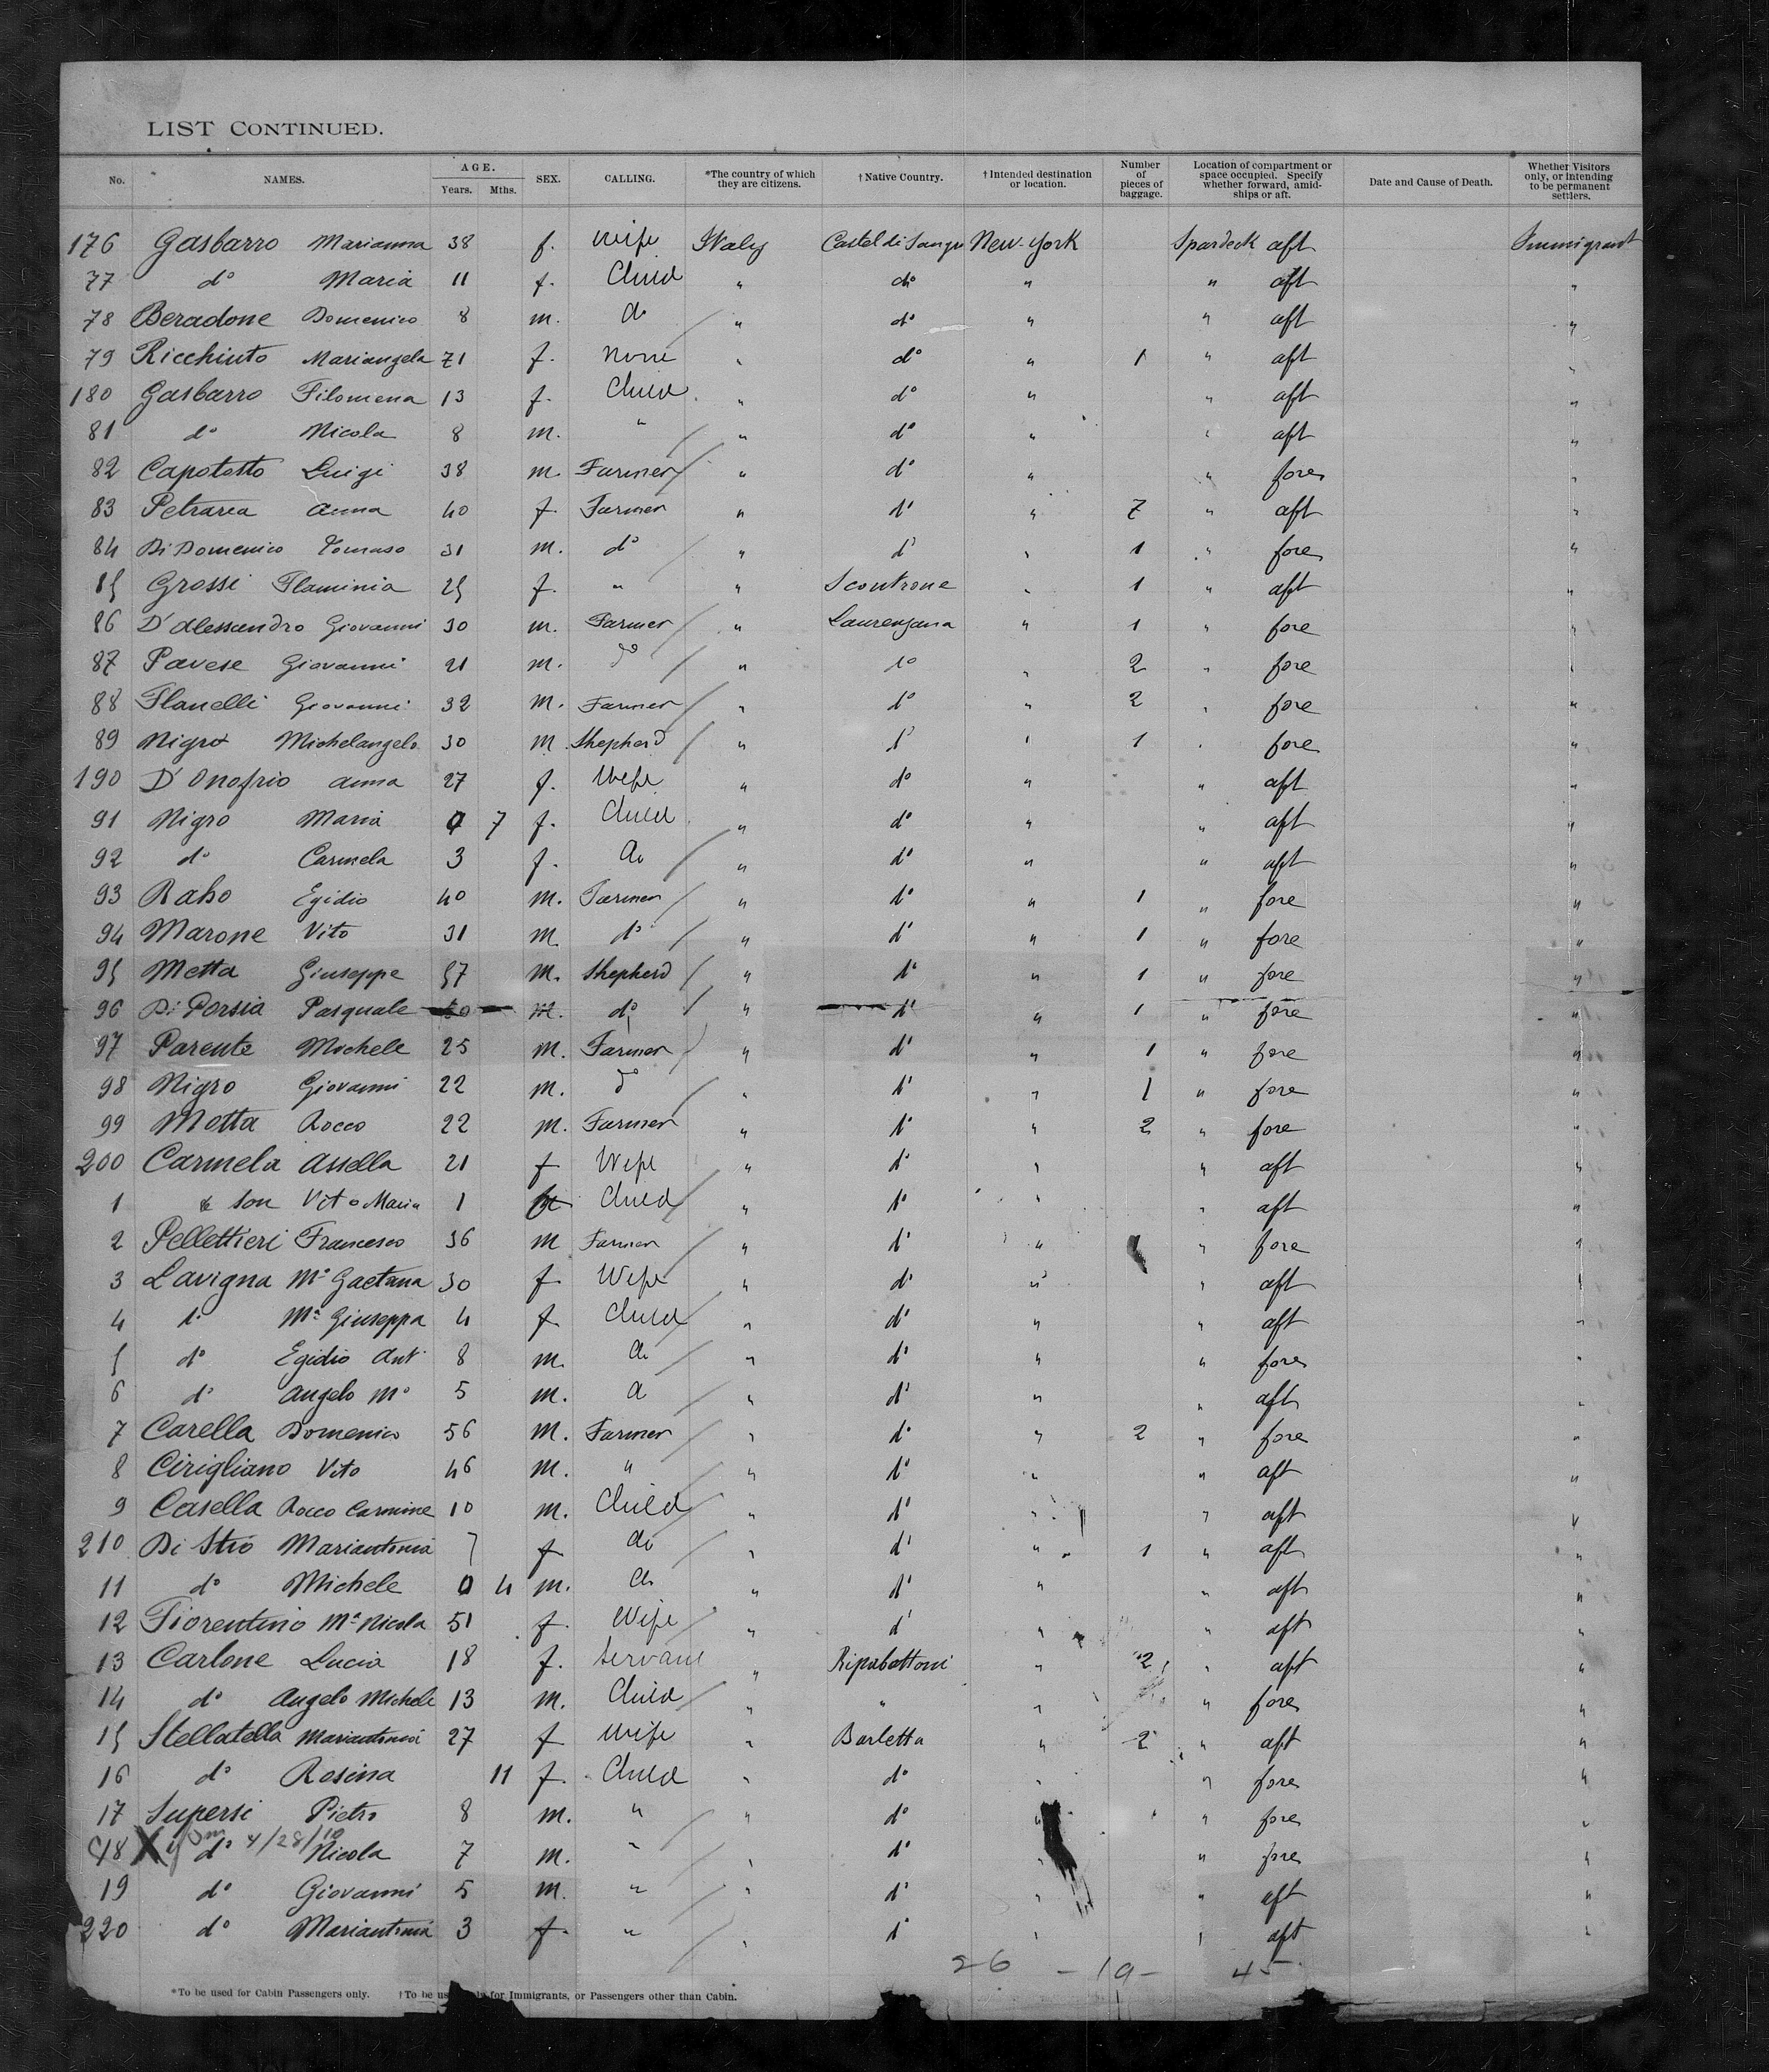 LIST CONTINUED.
No. NAMES. AGE. Years. Mths. SEX. CALLING. *The country of which they are citizens. †Native Country. †Intended destination or location. Number of pieces of baggage. Location of compartment or space occupied. Specify whether forward, amidships or aft. Date and Cause of Death. Whether Visitors only, or intending to be permanent settlers.
176 Gasbarro Marianna 38 f. Wife Italy Castel di Sangro New-York Spardeck aft Immigrant
77 do Maria 11 f. Child " do " " aft "
78 Beradone Domenico 8 m. do " do " " aft "
79 Ricchiuto Mariangela 71 f. None " do " 1 " aft "
180 Gasbarro Filomena 13 f. Child " do " " aft "
81 do Nicola 8 m. " " do " " aft "
82 Capotosto Luigi 38 m. Farmer " do " " fore "
83 Petrarca Anna 40 f. Farmer " do " 7 " aft "
84 Di Domenico Tomaso 31 m. do " do " 1 " fore "
85 Grossi Flaminia 25 f. " " Scontrone " 1 " aft "
86 D'Alessandro Giovanni 30 m. Farmer " Laurenzana " 1 " fore "
87 Pavese Giovanni 21 m. do " do " 2 " fore "
88 Flanelli Giovanni 32 m. Farmer " do " 2 " fore "
89 Nigro Michelangelo 30 m. Shepherd " do " 1 " fore "
190 D'Onofrio Anna 27 f. Wife " do " " aft "
91 Nigro Maria 0 7 f. Child " do " " aft "
92 do Carmela 3 f. do " do " " aft "
93 Raho Egidio 40 m. Farmer " do " 1 " fore "
94 Marone Vito 31 m. do " do " 1 " fore "
95 Motta Giuseppe 57 m. Shepherd " do " 1 " fore "
96 Di Persia Pasquale m. do " do " 1 " fore "
97 Parente Michele 25 m. Farmer " do " 1 " fore "
98 Nigro Giovanni 22 m. do " do " 1 " fore "
99 Motta Rocco 22 m. Farmer " do " 2 " fore "
200 Carmela Assella 21 f Wife " do " " aft "
1 & son Vito Maria 1 Child " do " " aft "
2 Pellettieri Francesco 36 m Farmer " do " " fore "
3 Lavigna Ma Gaetana 30 f Wife " do " " aft "
4 do Ma Giuseppa 4 f Child " do " " aft "
5 do Egidio Ant 8 m. do " do " " fore "
6 do Angelo Mo 5 m. do " do " " aft "
7 Carella Domenico 56 m. Farmer " do " 2 " fore "
8 Cirigliano Vito 46 m. " " do " " aft "
9 Casella Rocco Carmine 10 m. Child " do " " aft "
210 Di Stio Mariantonia 7 f do " do " 1 " aft "
11 do Michele 0 4 m. do " do " " aft "
12 Fiorentino Ma Nicola 51 f Wife " do " " aft "
13 Carlone Lucia 18 f. Servant " Ripabottoni " 2 " aft "
14 do Angelo Michele 13 m. Child " " " " fore "
15 Stellatella Mariantonia 27 f Wife " Barletta " 2 " aft "
16 do Rosina 11 f. Child " do " " fore "
17 Supersi Pietro 8 m. " " do " " fore "
4/28/10
18 X do Nicola 7 m. " " do " " fore "
19 do Giovanni 5 m. " " do " " aft "
220 do Mariantonia 3 f. " " do " " aft "
26 - 19 - 45
*To be used for Cabin Passengers only. †To be used for Immigrants, or Passengers other than Cabin.